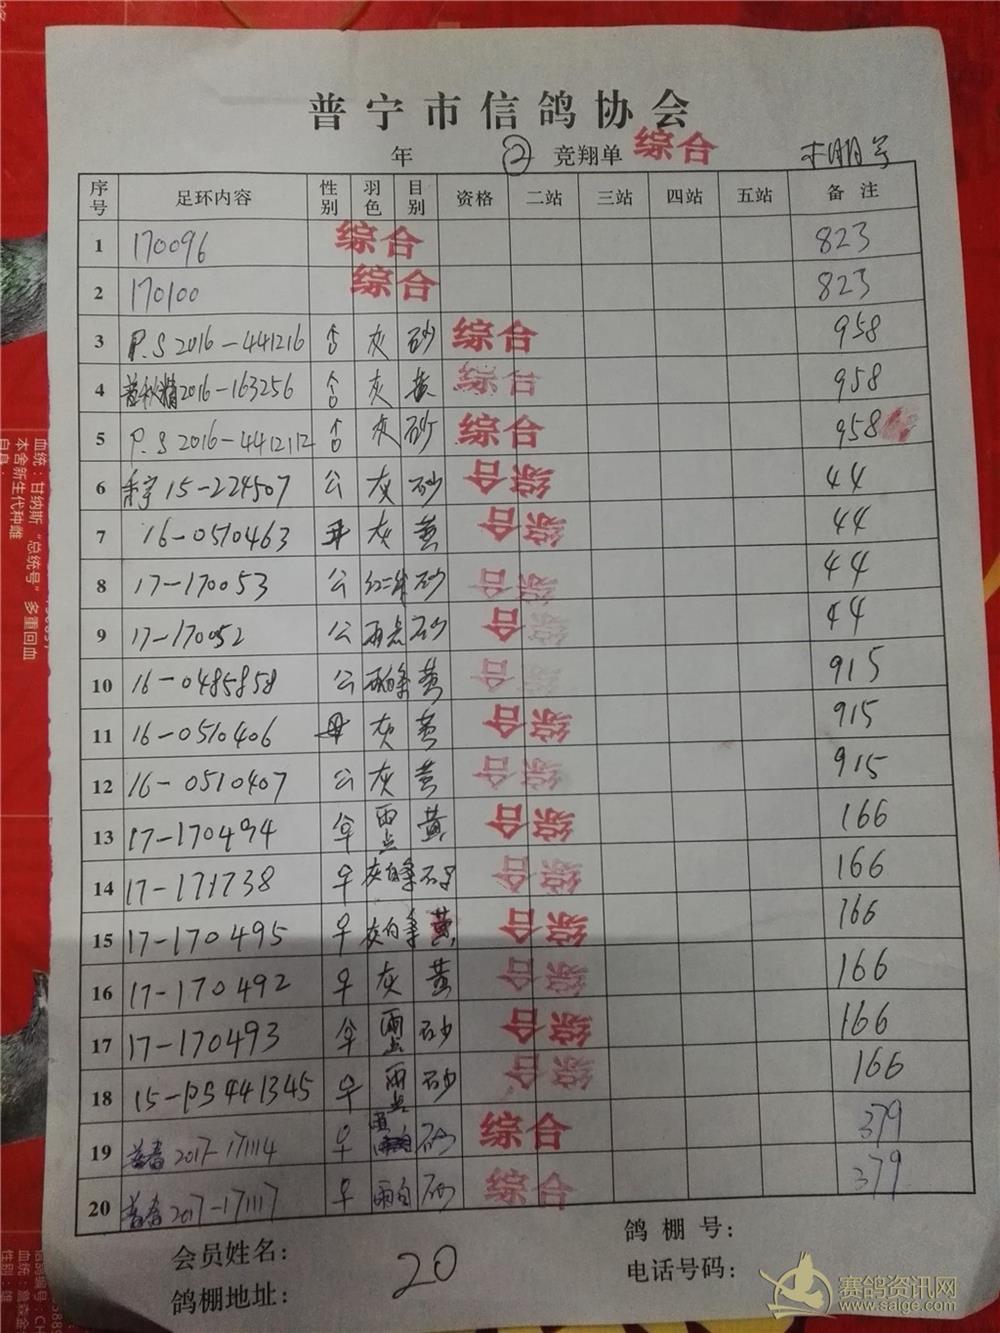 普宁市信鸽协会
年 ② 竞翔单 综合
序号 足环内容 性别 羽色 目别 资格 二站 三站 四站 五站 备注
1 170096 综合 823
2 170100 综合 823
3 P.S 2016-441216 灰 砂 综合 958
4 普秋精2016-163256 灰 黄 综合 958
5 P.S 2016-4412112 灰 砂 综合 958
6 15-224507 公 灰 砂 综合 44
7 16-0510463 母 灰 黄 综合 44
8 17-170053 公 砂 综合 44
9 17-170052 公 雨点 砂 综合 44
10 16-0485858 公 黄 综合 915
11 16-0510406 母 灰 黄 综合 915
12 16-0510407 公 灰 黄 综合 915
13 17-170494 雨点 黄 综合 166
14 17-171738 灰白条 砂 综合 166
15 17-170495 灰白条 黄 综合 166
16 17-170492 灰 黄 综合 166
17 17-170493 雨点 砂 综合 166
18 15-PS441345 雨点 砂 综合 166
19 普春2017-171114 砂 综合 379
20 普春2017-171117 雨白 砂 综合 379
会员姓名： 鸽棚号：
鸽棚地址： 20 电话号码：
血统：甘纳斯“总统号”多重回血
本舍新生代种雌
赛鸽资讯网
www.saige.com